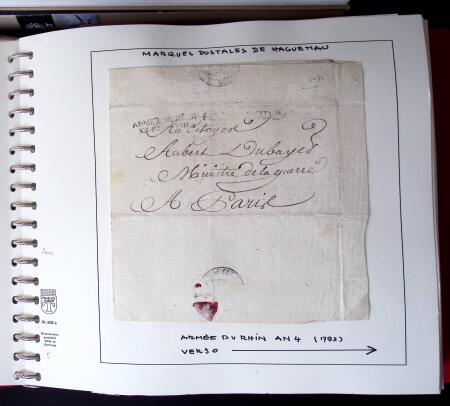 MARQUES POSTALES DE HAGUENAU
Au Citoyen
Aubert Dubayet
Ministre de la guerre
A Paris
ARMÉE DU RHIN AN 4 (1793)
VERSO